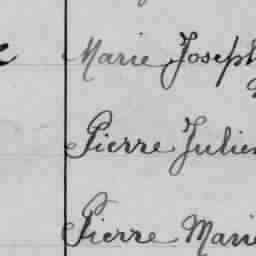 Marie Joseph
Pierre Julien
Pierre Marie